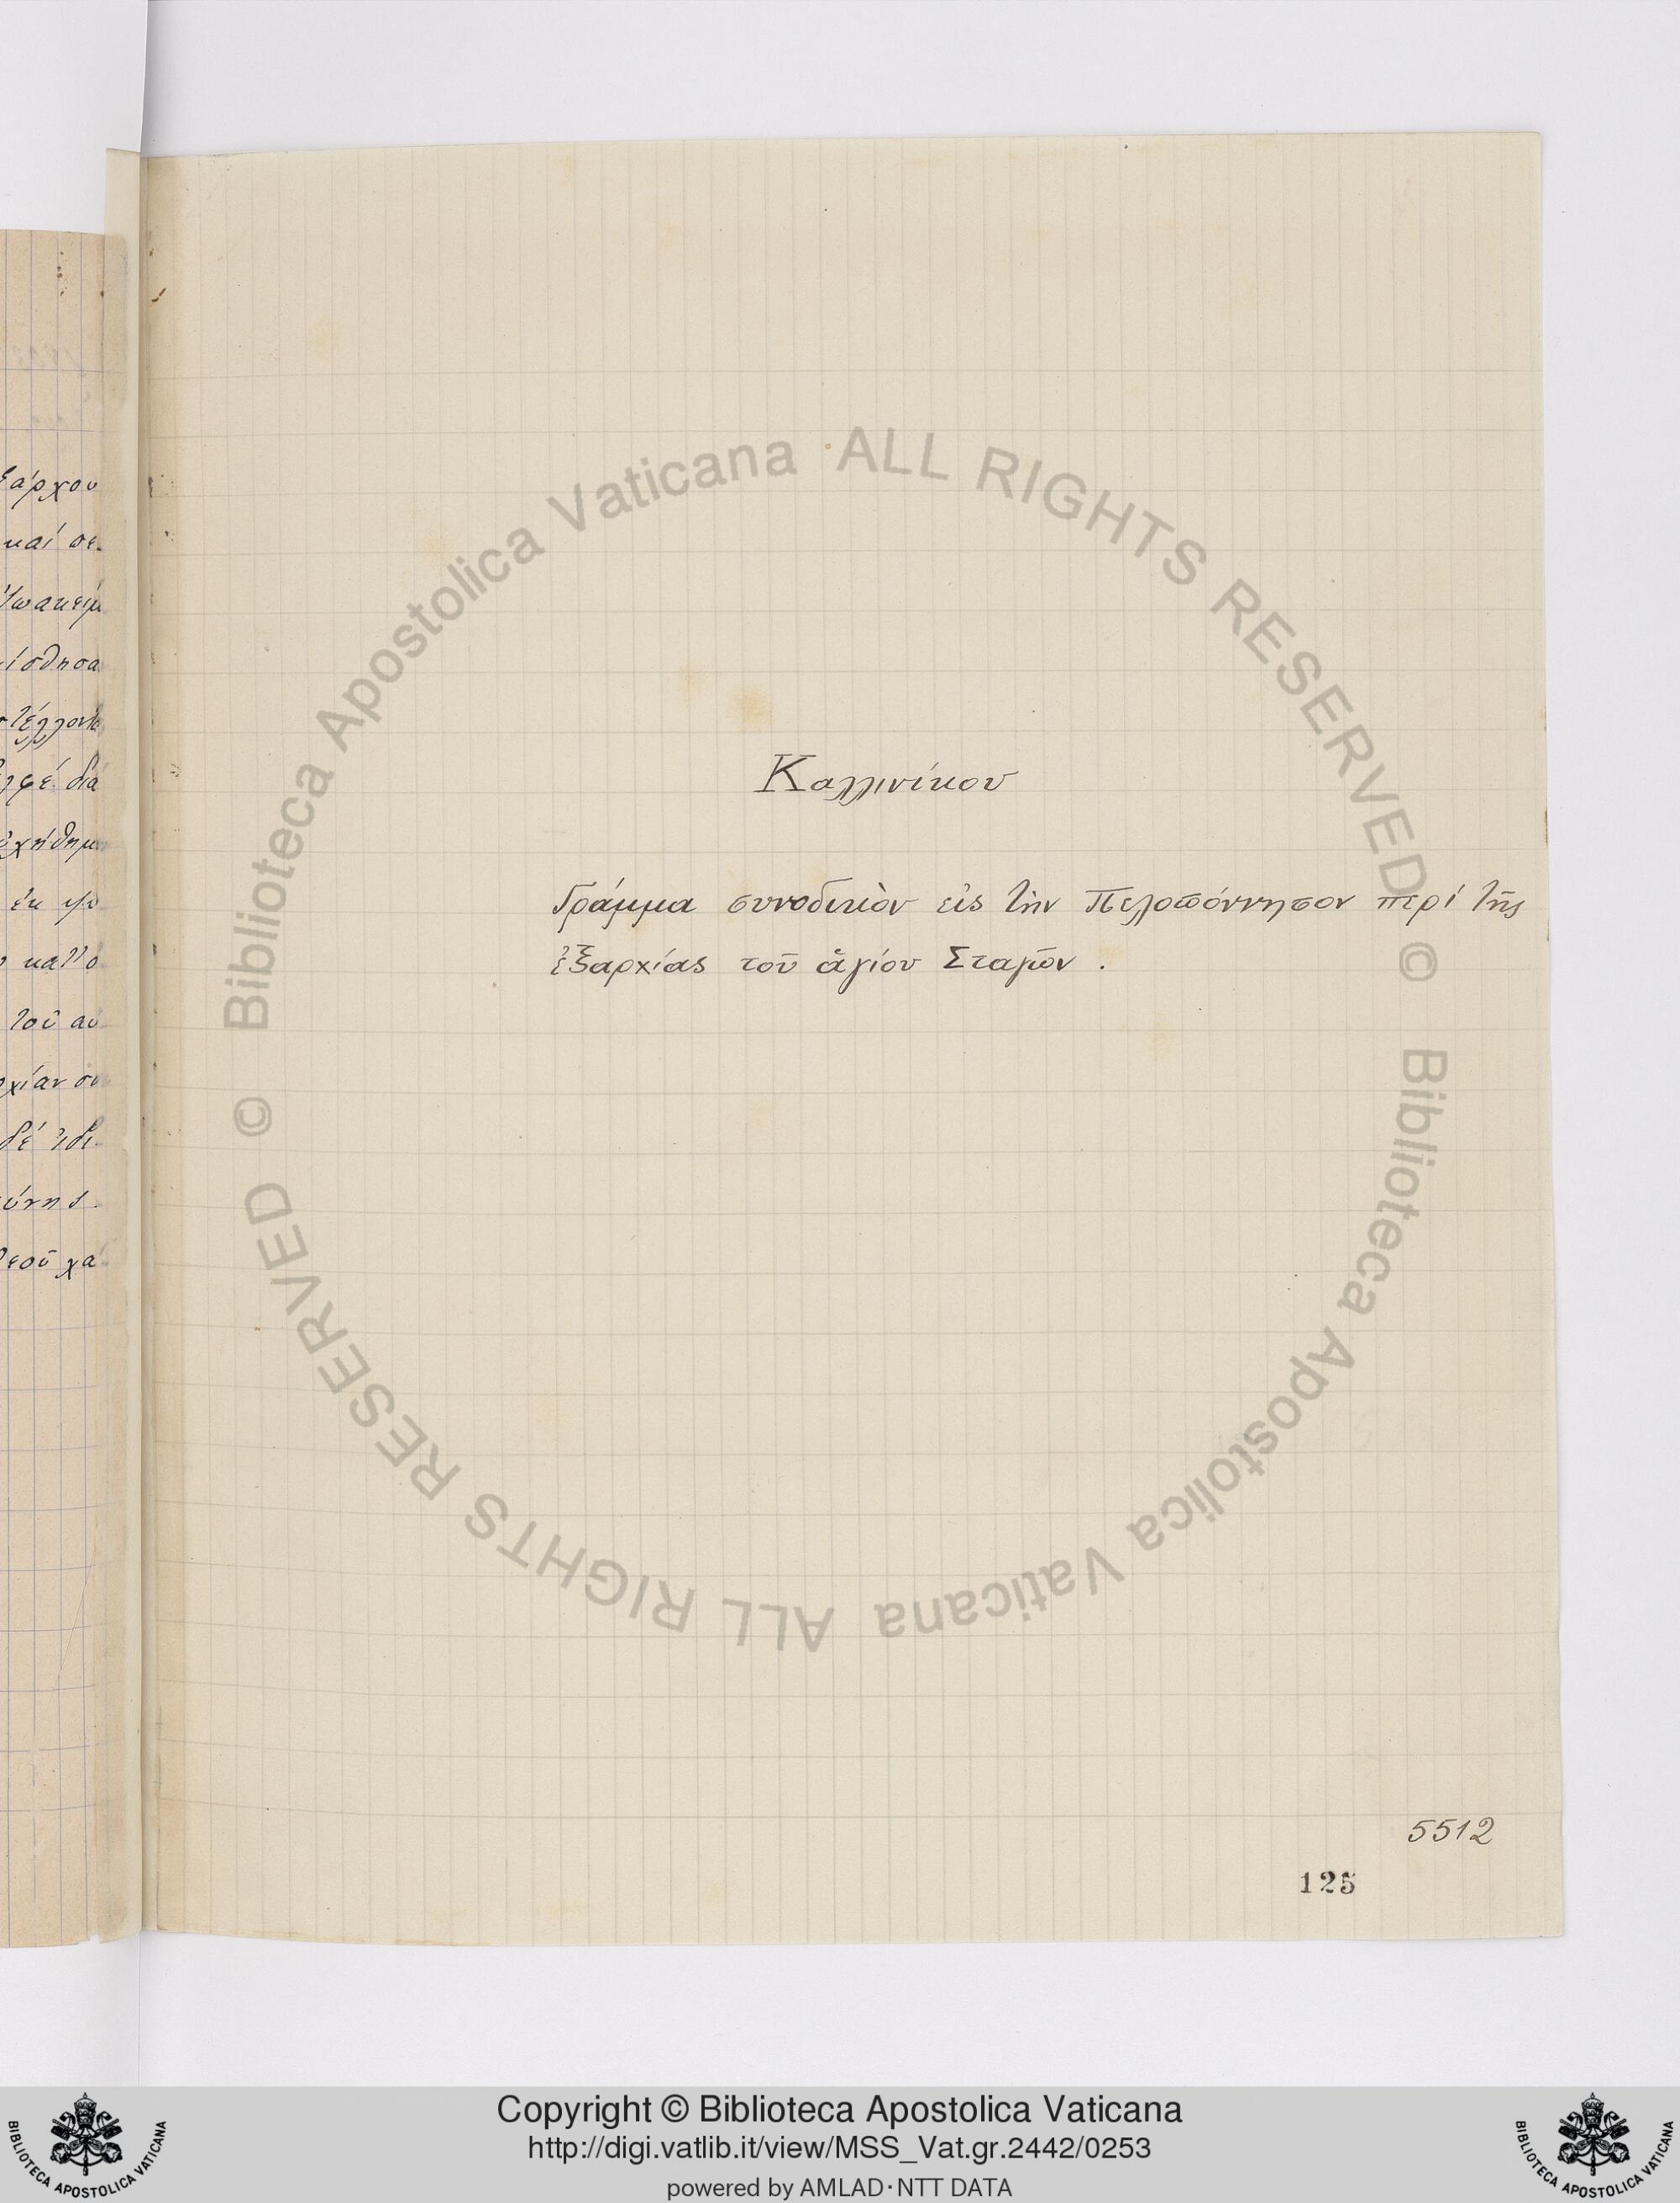 ξάρχου
καί σε
Ἰωακείμ
ίσθησα
χήθημ
ἐκ
τοῦ αὐ
χίαν
δέ
χα
Καλλινίκου
Γράμμα συνοδικὸν εἰς τὴν Πελοπόννησον περί τῆς
ἐξαρχίας τοῦ ἁγίου Σταγῶν .
5512
125
Biblioteca Apostolica Vaticana ALL RIGHTS RESERVED ©
Biblioteca Apostolica Vaticana ALL RIGHTS RESERVED ©
BIBLIOTECA APOSTOLICA VATICANA
Copyright © Biblioteca Apostolica Vaticana
http://digi.vatlib.it/view/MSS_Vat.gr.2442/0253
powered by AMLAD·NTT DATA
BIBLIOTECA APOSTOLICA VATICANA